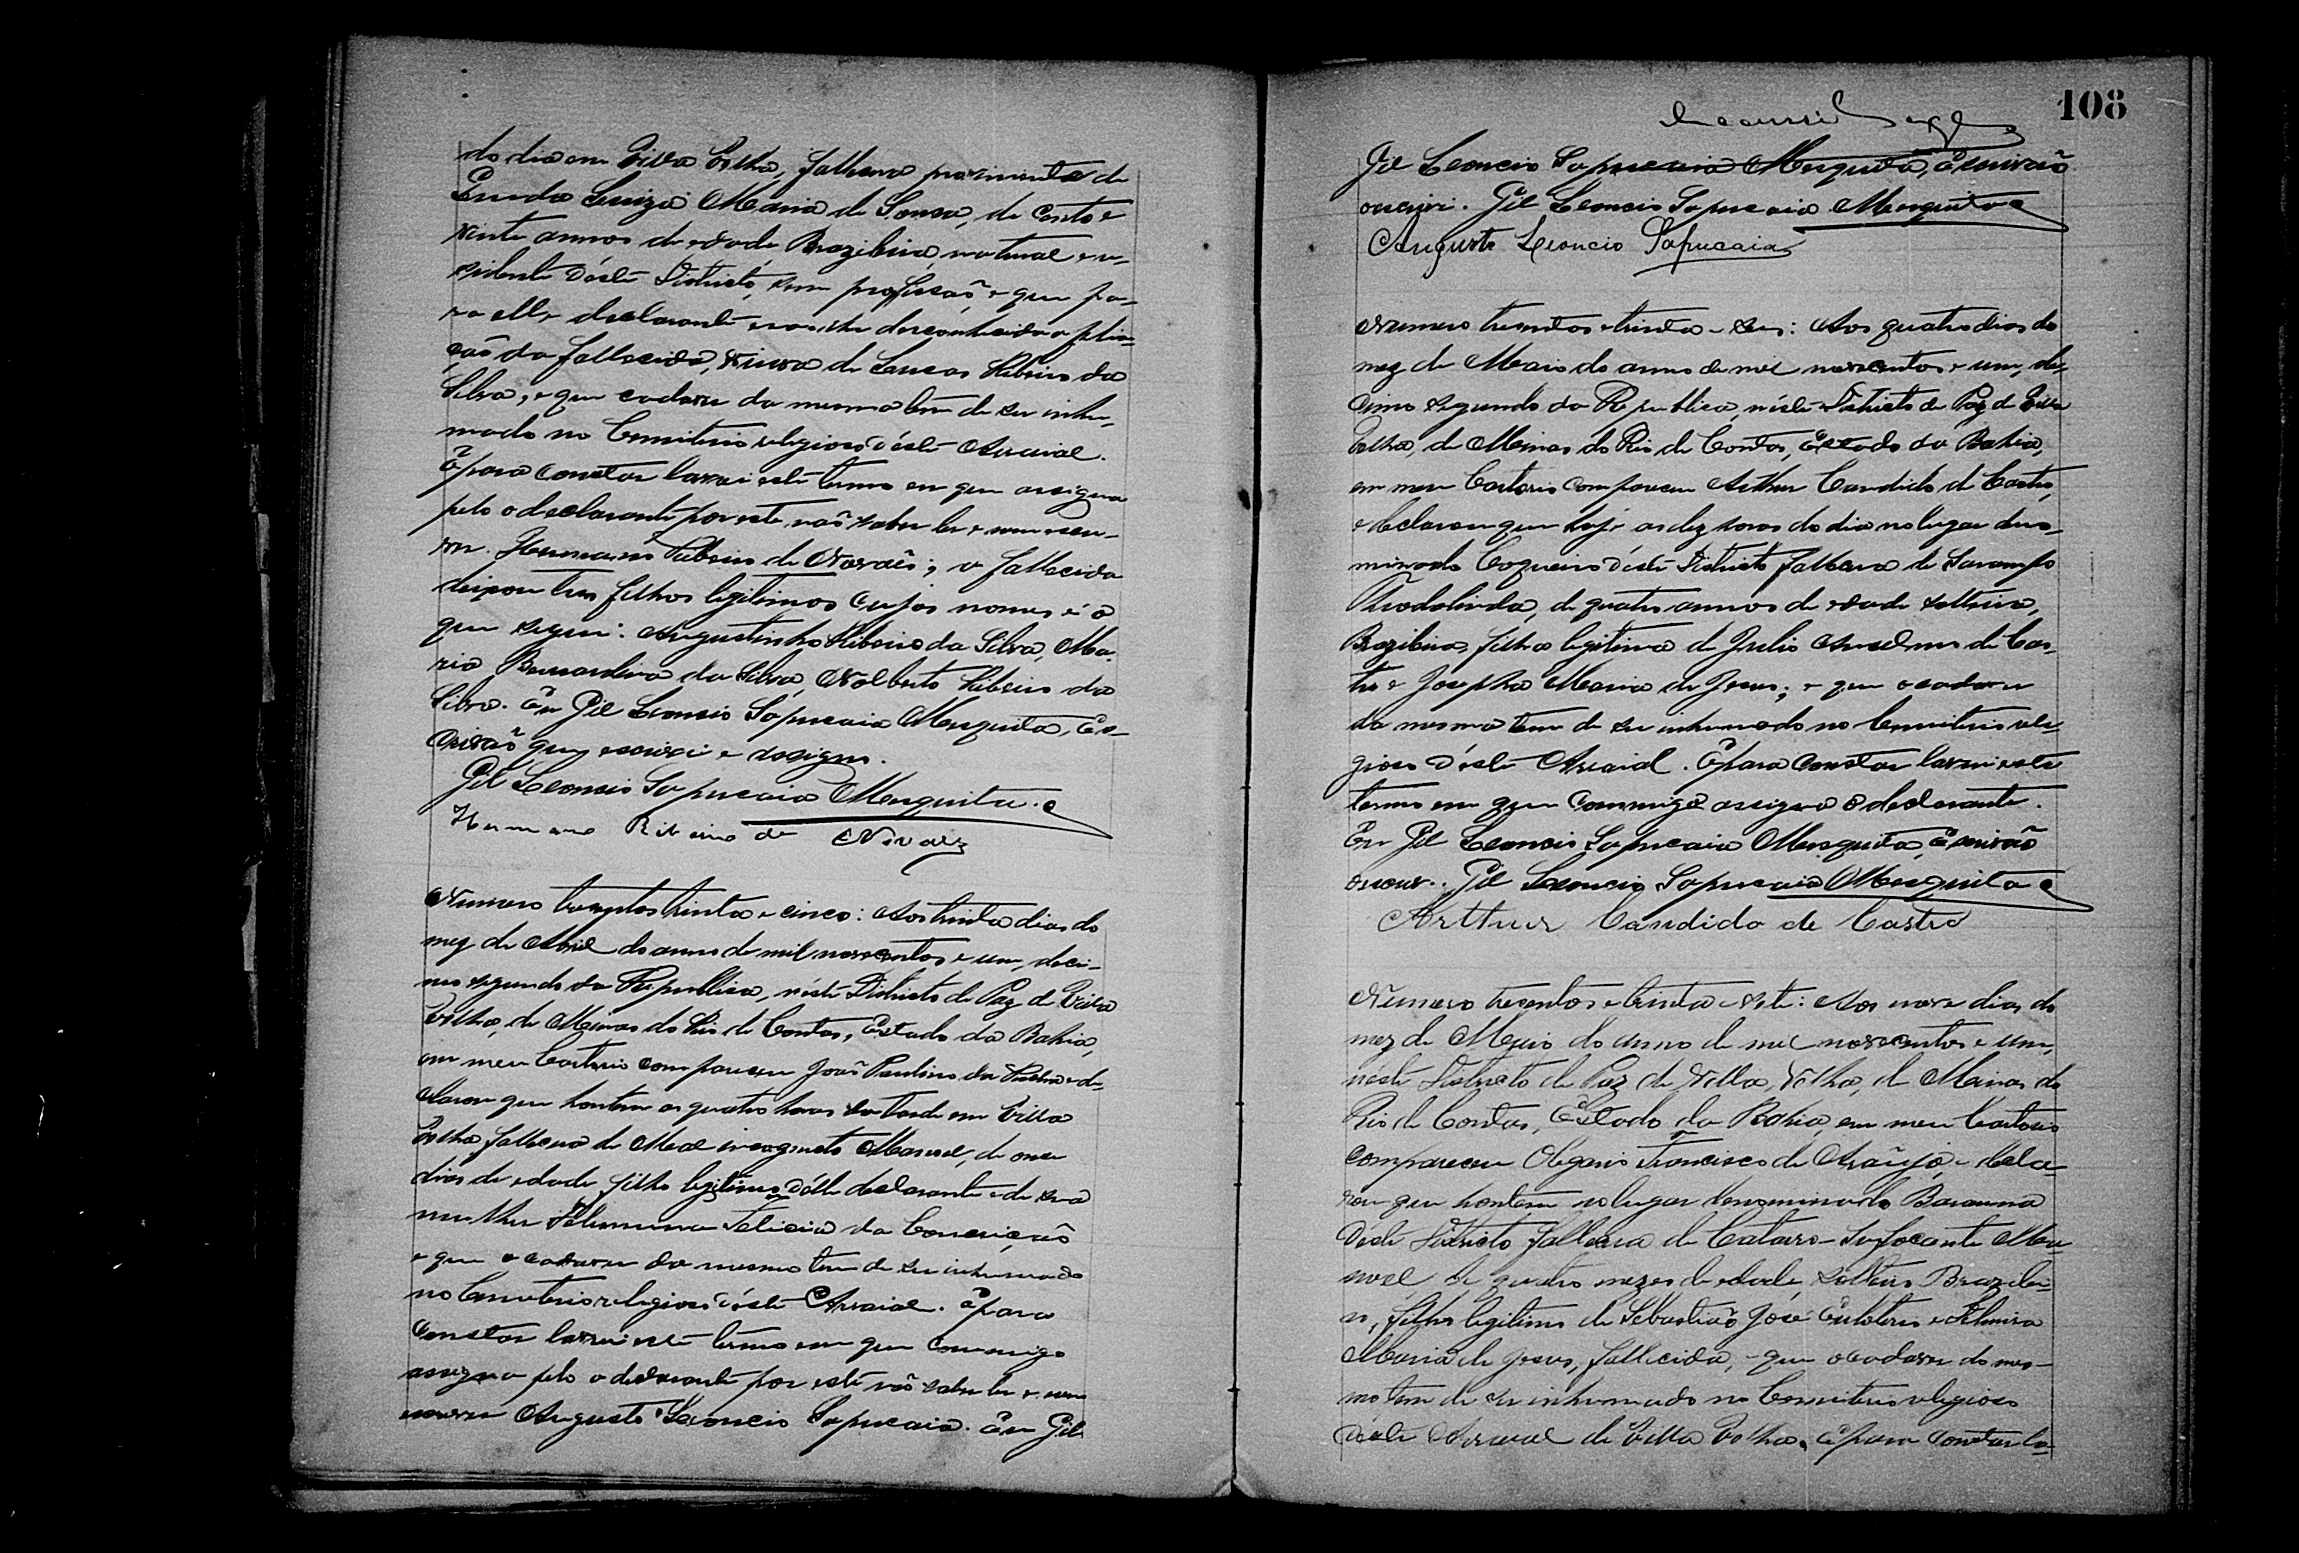 do dia em Villa Velha, fallecera proximamente de
Luiza Maria de Sousa, de cento e
vinte annos de edade, Brazileira, natural e re-
sidente déste Districto, sem profissaõ, e que pa-
ra elle declarante era desconhecida a filia-
çaõ da fallecida, viuva de Lucas Ribeiro da
Silva, e que cadaver da mesma tem de ser inhu-
mado no Cemiterio religioso déste Arraial.
E para constar lavrei este termo em que assigna
pelo o declarante por este naõ saber ler e nem escre-
ver. Hermano Ribeiro de Novaes; a fallecida
deixou tres filhos legitimos cujos nomes é o
que segue: Augustinho Ribeiro da Silva, Ma-
ria Bernardina da Silva, Nolberto Ribeiro da
Silva. Eu Gil Leoncio Sapucaia Mesquita, Es-
crivaõ que escrivi e assigno.
Gil Leoncio Sapucaia Mesquita.
Hermano Ribeiro de Novaes
Numero trezentos trinta e cinco: Aos trinta dias do
mez de Abril do anno de mil novecentos e um, deci-
mo segundo da Republica, néste Districto de Paz de Villa
Velha, de Minas do Rio de Contas, Estado da Bahia,
em meu Cartorio compareceu Joaõ Paulino da e de-
clarou que hontem as quatro horas da tarde em Villa
Velha fallecera de Mal Manoel, de onze
dias de edade, filho legitimo délle declarante e de sua
mulher Felicia da Conceiçaõ
e que o cadaver do mesmo tem de ser inhumado
no Cemiterio religioso déste Arraial. E para
constar lavrei este termo em que commigo
assigna pelo o declarante por este naõ saber ler e nem
escrever Augusto Leoncio Sapucaia. Eu Gil
108
Gil Leoncio Sapucaia Mesquita, Escrivaõ
escrivi. Gil Leoncio Sapucaia Mesquita
Augusto Leoncio Sapucaia
Numero trezentos e trinta e seis: Aos quatro dias do
mez de Maio do anno de mil novecentos e um, de-
cimo segundo da Republica, néste Districto de Paz de Villa
Velha, de Minas do Rio de Contas, Estado da Bahia,
em meu Cartorio compareceu Arthur Candido de Castro,
e declarou que hoje as dez horas do dia no lugar deno-
minado Coqueiro déste Districto fallecera de Sarampo
Theodolinda, de quatro annos de edade, solteira,
Brazileira, filha legitima de Julio Anselmo de Cas-
tro e Josepha Maria de Jesus; e que o cadaver
da mesma tem de ser inhumado no Cemiterio reli-
gioso déste Arraial. E para constar lavrei este
termo em que commigo assigna o declarante.
Eu Gil Leoncio Sapucaia Mesquita, Escrivaõ
escrevi. Gil Leoncio Sapucaia Mesquita
Arthur Candido de Castro
Numero trezentos e trinta e sete: Aos nove dias do
mez de Maio do anno de mil novecentos e um,
néste Districto de Paz de Villa Velha, de Minas do
Rio de Contas, Estado da Bahia, em meu Cartorio
compareceu Olegario Francisco de Araujo e decla-
rou que hontem no lugar denominado Barauna
déste Districto fallecera de Catarro-Sufocante Ma-
noel de quatro mezes de edade, solteiro Brazilei-
ro, filho legitimo de Sebastiaõ José e
Maria de Jesus, fallecida, e que o cadaver do mes-
mo tem de ser inhumado no Cemiterio religioso
déste Arraial de Villa Velha. E para constar la-